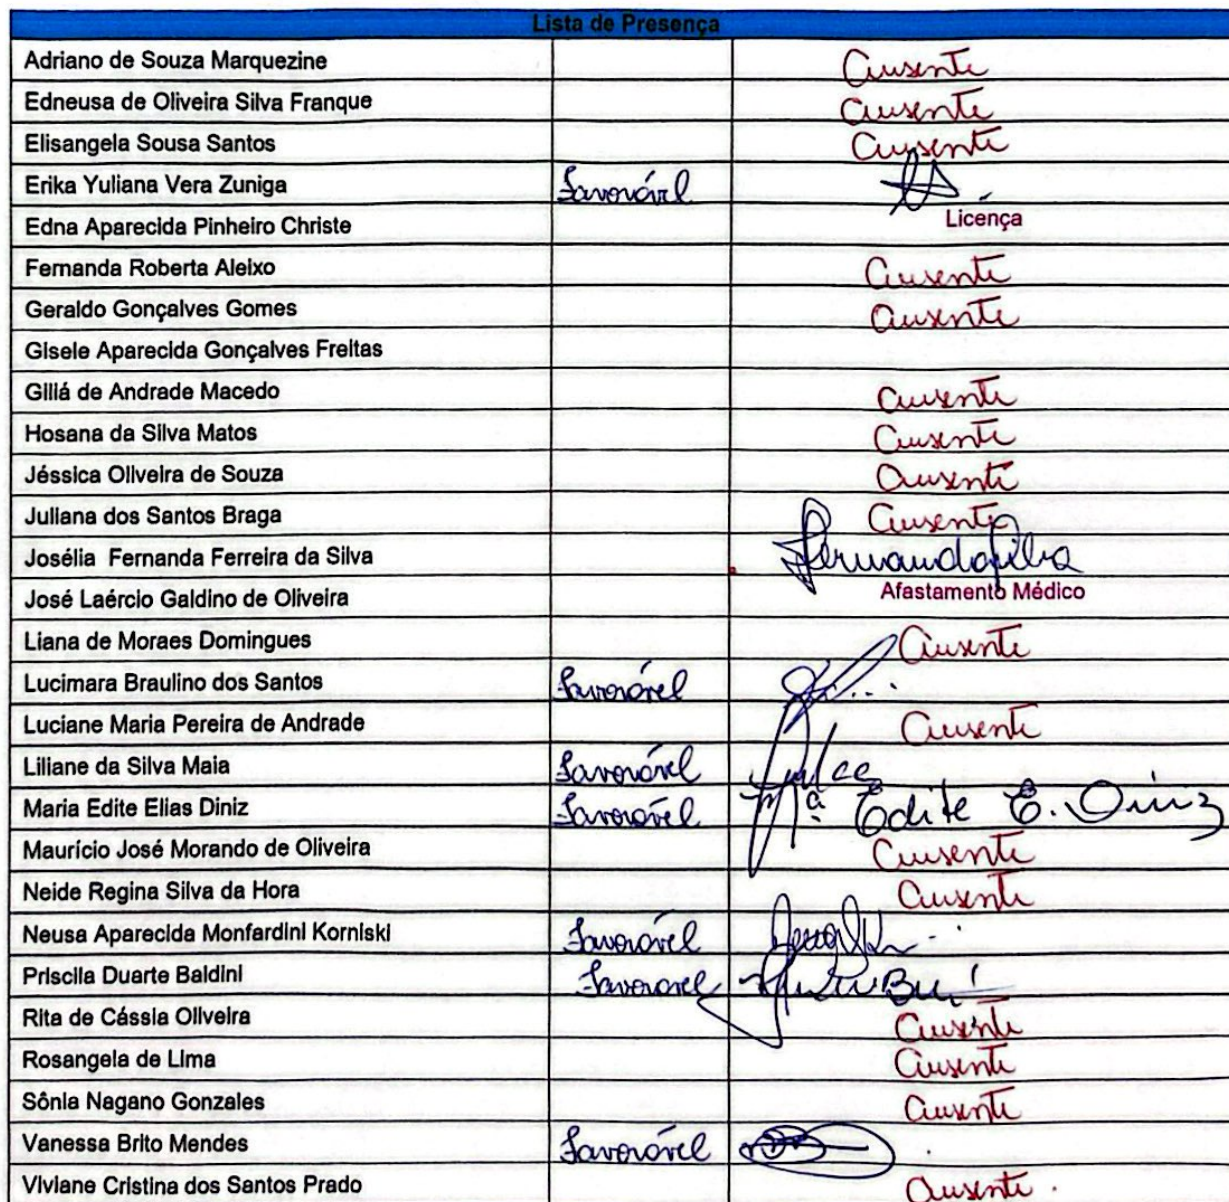 Lista de Presença
Adriano de Souza Marquezine Ausente
Edneusa de Oliveira Silva Franque Ausente
Elisangela Sousa Santos Ausente
Erika Yuliana Vera Zuniga Favorável
Edna Aparecida Pinheiro Christe Licença
Fernanda Roberta Aleixo Ausente
Geraldo Gonçalves Gomes Ausente
Gisele Aparecida Gonçalves Freitas
Giliá de Andrade Macedo Ausente
Hosana da Silva Matos Ausente
Jéssica Oliveira de Souza Ausente
Juliana dos Santos Braga Ausente
Josélia Fernanda Ferreira da Silva Fernanda Silva
José Laércio Galdino de Oliveira Afastamento Médico
Liana de Moraes Domingues Ausente
Lucimara Braulino dos Santos Favorável
Luciane Maria Pereira de Andrade Ausente
Liliane da Silva Maia Favorável
Maria Edite Elias Diniz Favorável Mª Edite E. Diniz
Maurício José Morando de Oliveira Ausente
Neide Regina Silva da Hora Ausente
Neusa Aparecida Monfardini Korniski Favorável
Priscila Duarte Baldini Favoravel
Rita de Cássia Oliveira Ausente
Rosangela de Lima Ausente
Sônia Nagano Gonzales Ausente
Vanessa Brito Mendes Favorável
Viviane Cristina dos Santos Prado Ausente.